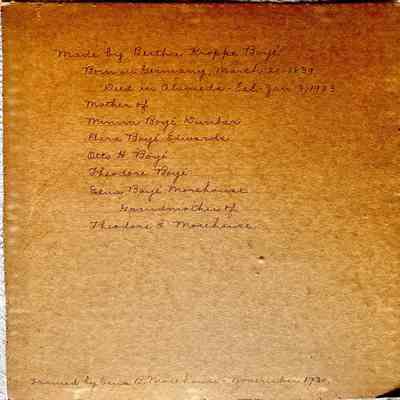 Made by Bertha Kroppe Boyé
Born in Germany, March 1839
Died in Alameda - Cal - Jan 3, 1923
Mother of
Minnie Boyé Dunbar
Boyé Edwards
Otto H. Boyé
Theodore Boyé
Edna Boyé Morehouse
Grandmother of
Theodore B. Morehouse
Framed by Edna B. Morehouse - November